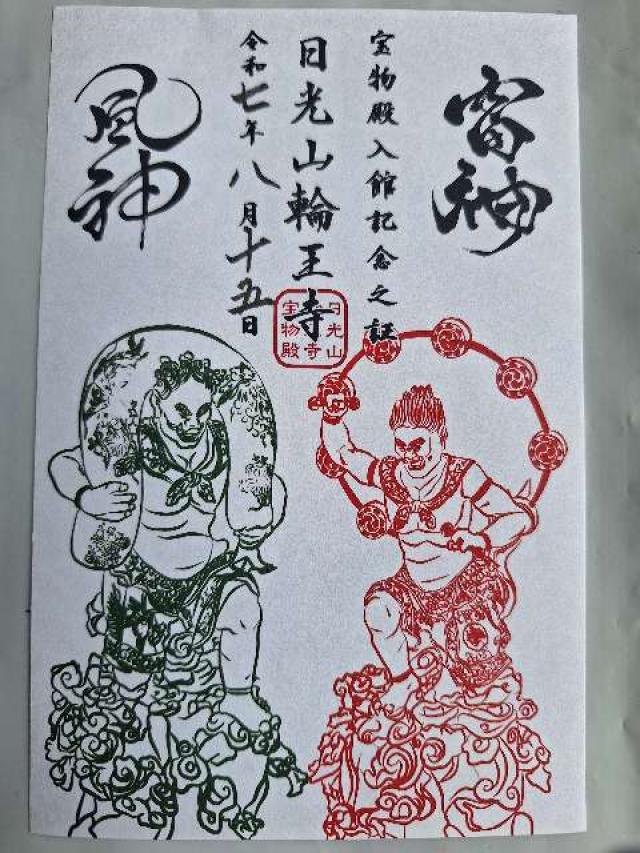 雷神
宝物殿入館記念之証
日光山輪王寺
令和七年八月十五日
風神
日光山
寺
宝物殿